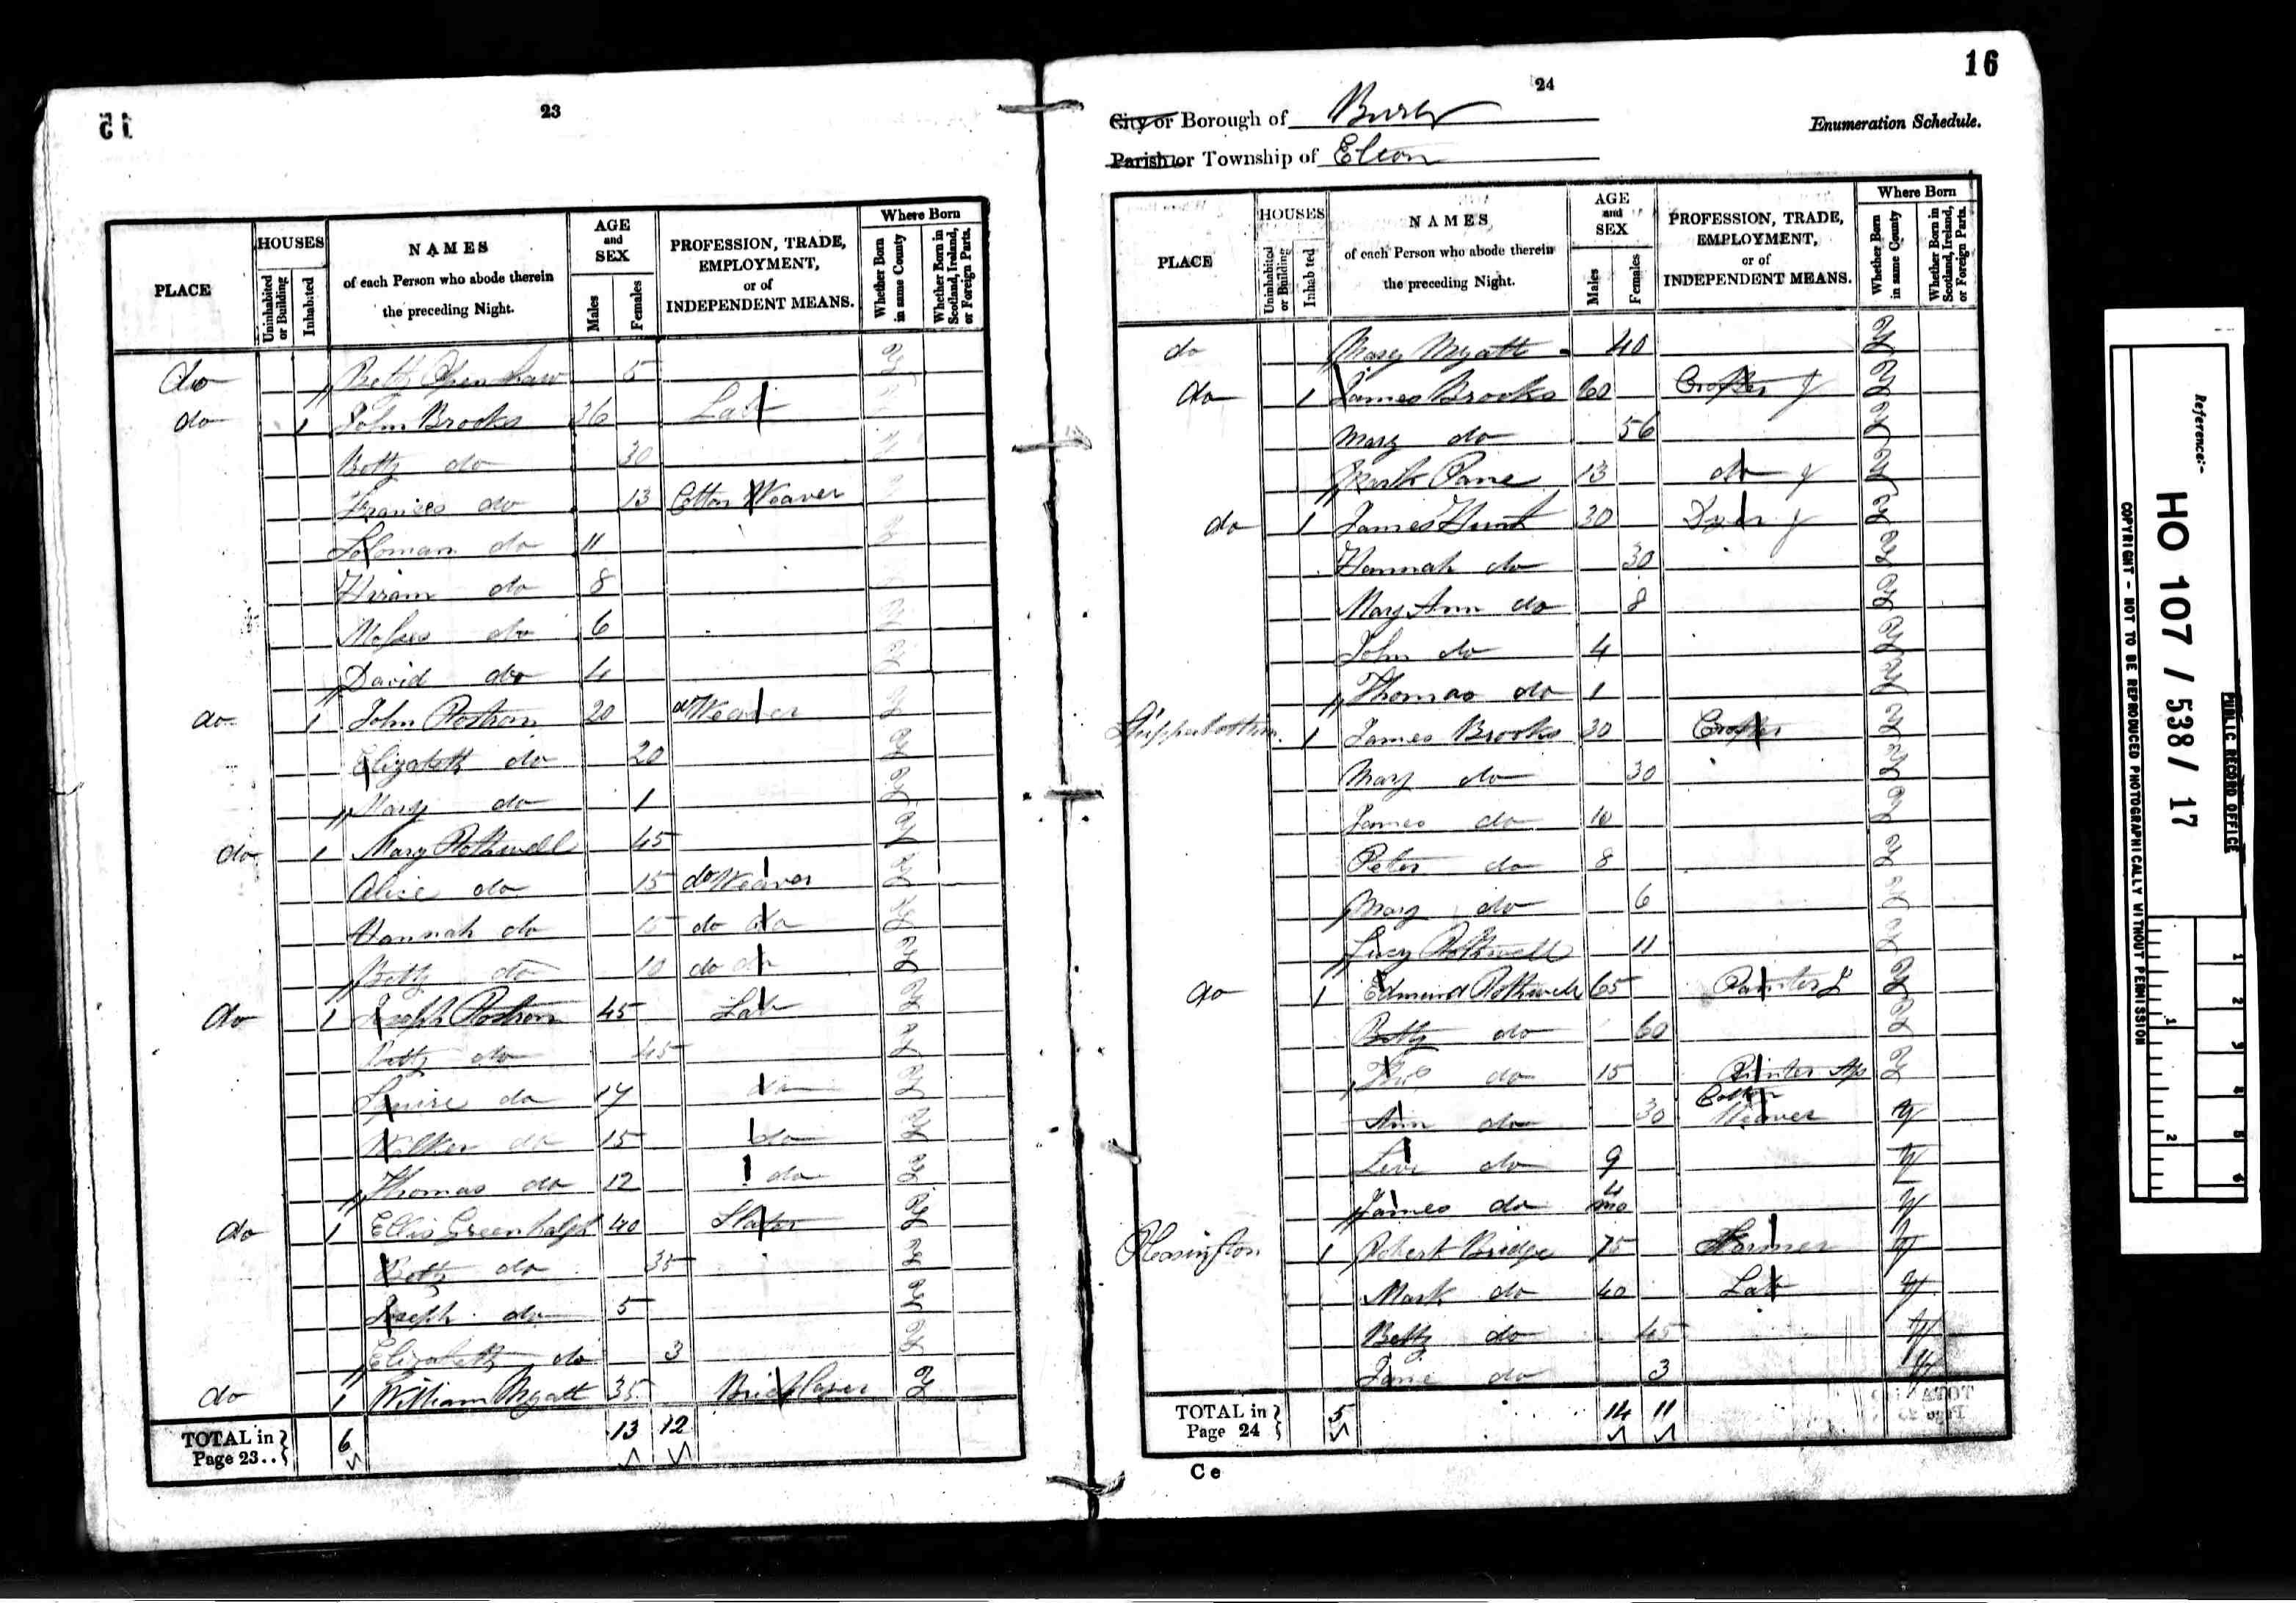 15
23
PLACE
HOUSES
Uninhabited or Building
Inhabited
NAMES
of each Person who abode therein
the preceding Night.
AGE
and
SEX
Males
Females
PROFESSION, TRADE,
EMPLOYMENT,
or of
INDEPENDENT MEANS.
Where Born
Whether Born in same County
Whether Born in Scotland, Ireland, or Foreign Parts.
do Betty Openshaw 5 Y
do 1 John Brooks 36 Lab Y
Betty do 30 Y
Frances do 13 Cotton Weaver Y
Soloman do 11 Y
Hiram do 8 Y
Moses do 6 Y
David do 4 Y
do 1 John Rostron 20 do Weaver Y
Elizabeth do 20 Y
Mary do 1 Y
do 1 Mary Rothwell 45 Y
Alice do 15 do Weaver Y
Hannah do 15 do do Y
Betty do 10 do do Y
do 1 Joseph Rostron 45 Lab Y
Betty do 45 Y
Squire do 17 do Y
Walker do 15 do Y
Thomas do 12 do Y
do 1 Ellis Greenhalgh 40 Slater Y
Betty do 35 Y
Joseph do 5 Y
Elizabeth do 3 Y
do 1 William Myatt 35 Bricklayer Y
TOTAL in
Page 23..
6 13 12
16
24
City or Borough of Bury
Enumeration Schedule.
Parish or Township of Elton
PLACE
HOUSES
Uninhabited or Building
Inhabited
NAMES
of each Person who abode therein
the preceding Night.
AGE
and
SEX
Males
Females
PROFESSION, TRADE,
EMPLOYMENT,
or of
INDEPENDENT MEANS.
Where Born
Whether Born in same County
Whether Born in Scotland, Ireland, or Foreign Parts.
do Mary Myatt 40 Y
do 1 James Brooks 60 Crofter J Y
Mary do 56 Y
Mark 13 do J Y
do 1 James Hunt 30 Dyer J Y
Hannah do 30 Y
Mary Ann do 8 Y
John do 4 Y
Thomas do 1 Y
1 James Brooks 30 Crofter Y
Mary do 30 Y
James do 10 Y
Peter do 8 Y
Mary do 6 Y
Lucy Rothwell 11 Y
do 1 Edmund Rothwell 65 J Y
Betty do 60 Y
Thos do 15 Printer Ap Y
Ann do 30 Cotton Weaver Y
Levi do 9 Y
James do 4 mo Y
1 Robert Bridge 75 Farmer Y
Mark do 40 Lab Y
Betty do 45 Y
Jane do 3 Y
TOTAL in
Page 24
5 14 11
C e
Reference:-
HO 107 / 538 / 17
PUBLIC RECORD OFFICE
COPYRIGHT - NOT TO BE REPRODUCED PHOTOGRAPHICALLY WITHOUT PERMISSION
1
2
1 2 3 4 5 6